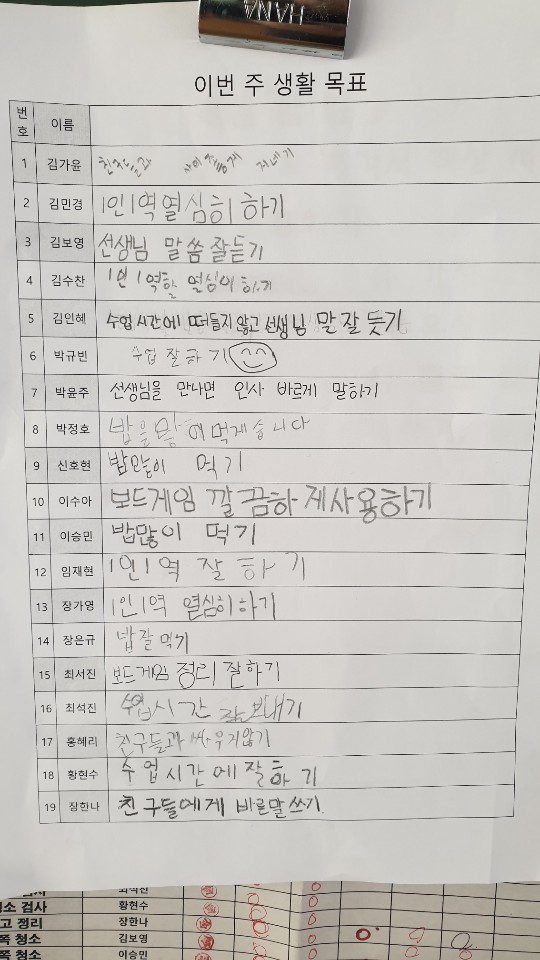 HANA
이번 주 생활 목표
번호 이름
1 김가윤 친구들과 사이좋게 지네기
2 김민경 1인1역열심히 하기
3 김보영 선생님 말씀잘듣기
4 김수찬 1인 1역할 열심이 하기
5 김인혜 수업시간에 떠들지않고 선생님 말 잘 듯기
6 박규빈 수업 잘하기
7 박윤주 선생님을 만나면 인사 바르게 말하기
8 박정호 밥을 많이먹게습니다
9 신호현 밥많이 먹기
10 이수아 보드게임 깔끔하게사용하기
11 이승민 밥많이 먹기
12 임재현 1인1역 잘 하기
13 장가영 1인1역 열심히하기
14 장은규 밥잘먹기
15 최서진 보드게임 정리 잘하기
16 최석진 수업시간 잘보내기
17 홍혜리 친구들과 싸우지않기
18 황현수 수업시간에잘하기
19 장한나 친구들에게 바른말쓰기
최석진
소 검사 황현수
고 정리 장한나
쪽 청소 김보영
쪽 청소 이승민